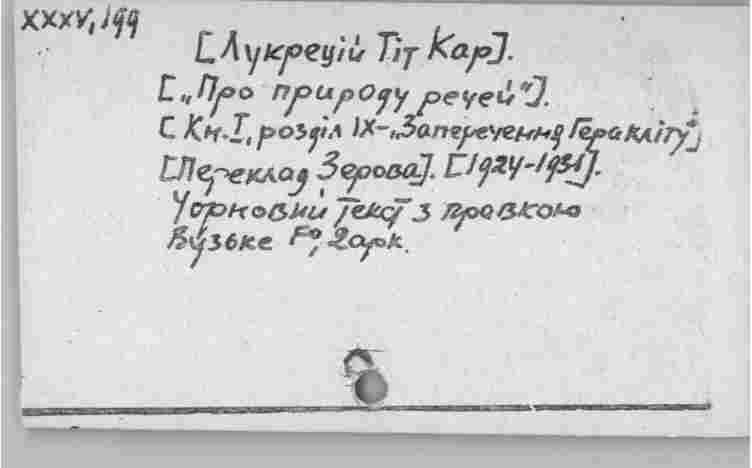 XXXV, 199
[Лукрецій Тіт Кар].
[„Про природу речей"].
[Кн. I, розділ IX-„Заперечення Геракліту"]
[Переклад Зерова]. [1924-1931].
Чорновий текст з правкою
Вузьке F°, 2арк.